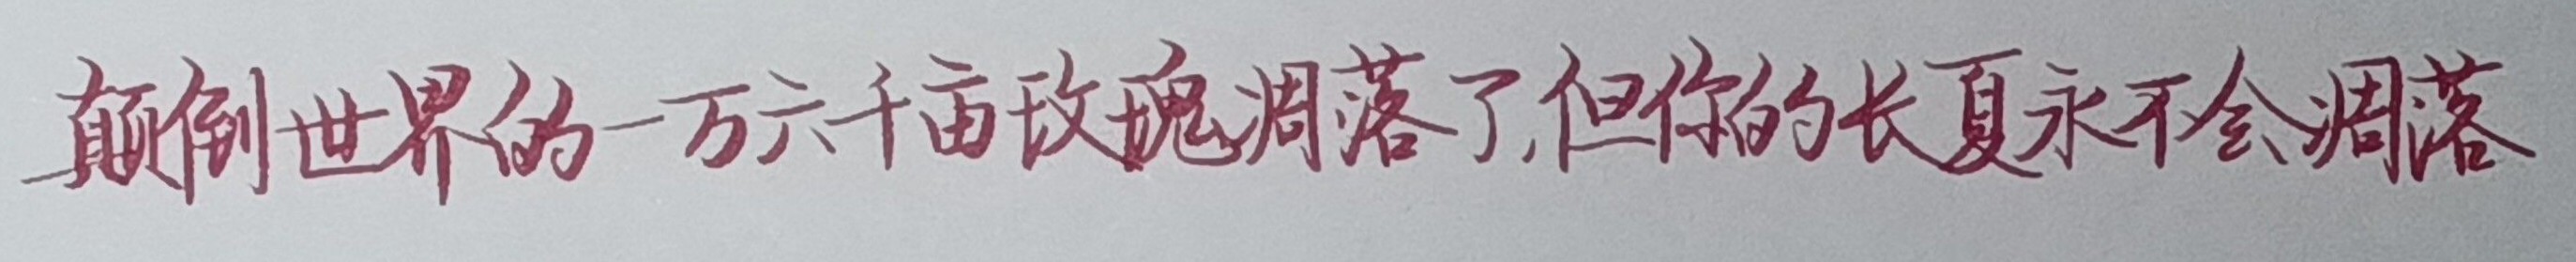 颠倒世界的一万六千亩玫瑰凋落了,但你的长夏永不会凋落